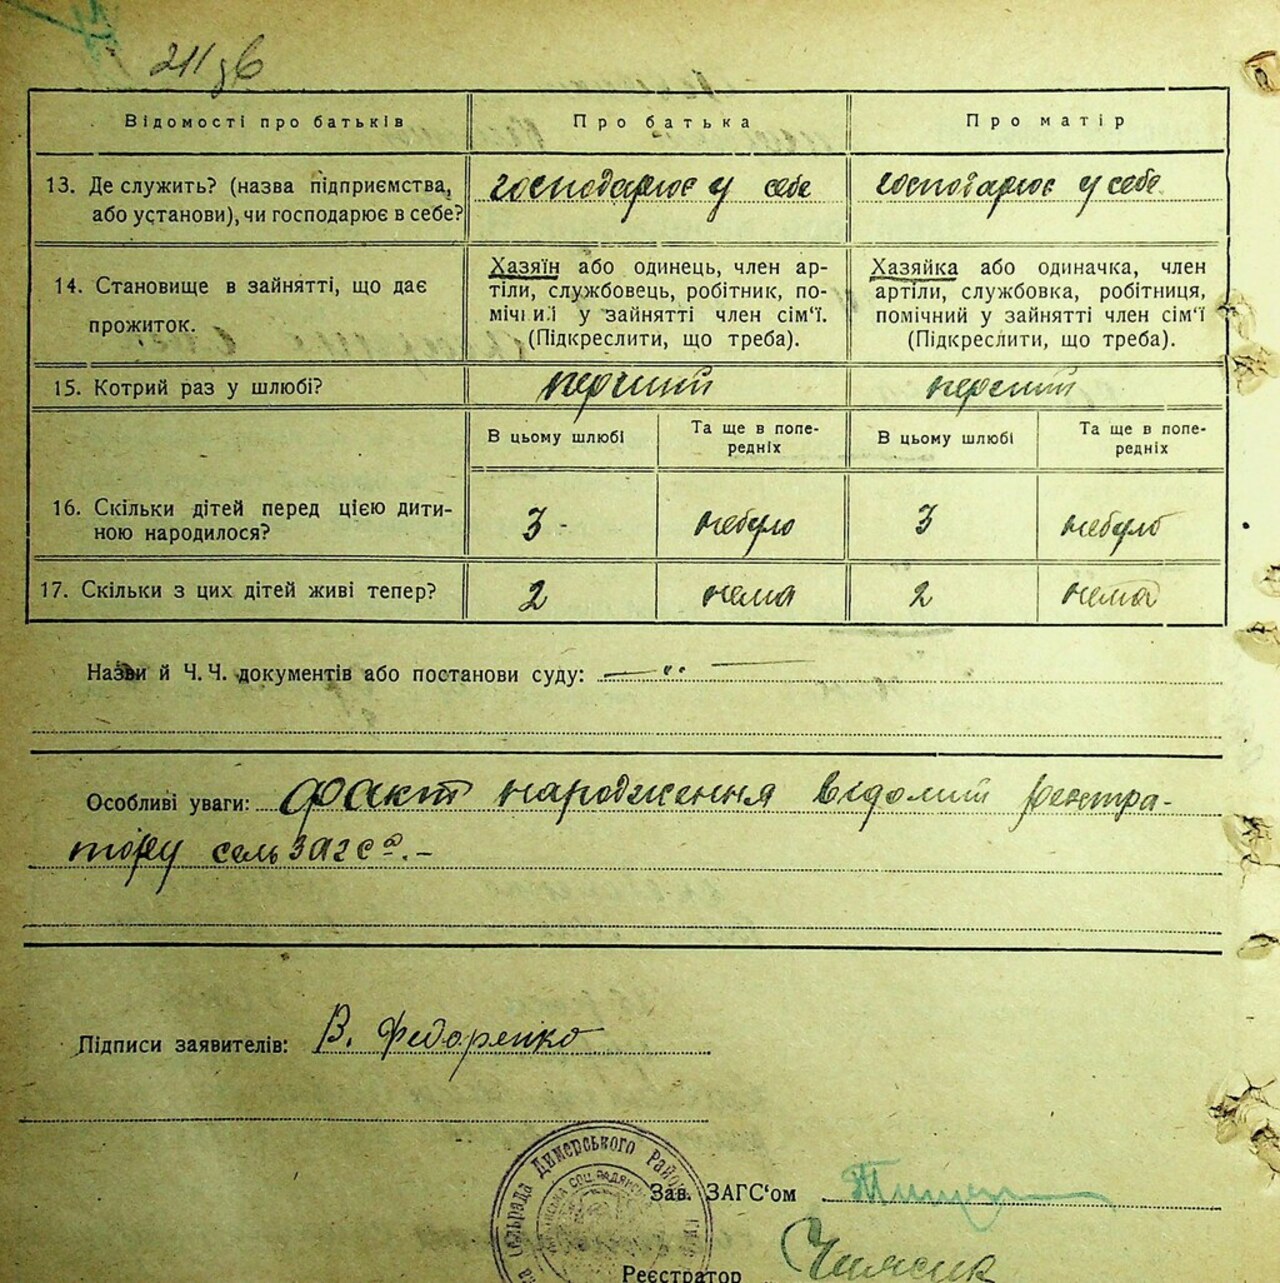 211 зв
Відомості про батьків
Про батька
Про матір
13. Де служить? (назва підприємства,
або установи), чи господарює в себе?
господарює у себе
господарює у себе
14. Становище в зайнятті, що дає
прожиток.
Хазяїн або одинець, член ар-
тіли, службовець, робітник, по-
мічний у зайнятті член сім'ї.
(Підкреслити, що треба).
Хазяйка або одиначка, член
артіли, службовка, робітниця,
помічний у зайнятті член сім'ї
(Підкреслити, що треба).
15. Котрий раз у шлюбі?
перший
перший
В цьому шлюбі
Та ще в попе-
редніх
В цьому шлюбі
Та ще в попе-
редніх
16. Скільки дітей перед цією дити-
ною народилося?
3 -
небуло
3
небуло
17. Скільки з цих дітей живі тепер?
2
нема
2
нема
Назви й Ч. Ч. документів або постанови суду:
Особливі уваги: факт народження відомий реєстра-
тору сельЗАГСа. -
Підписи заявителів: В. Федоренко
сільрада Димерського Району
Зав. ЗАГС'ом
Реєстратор